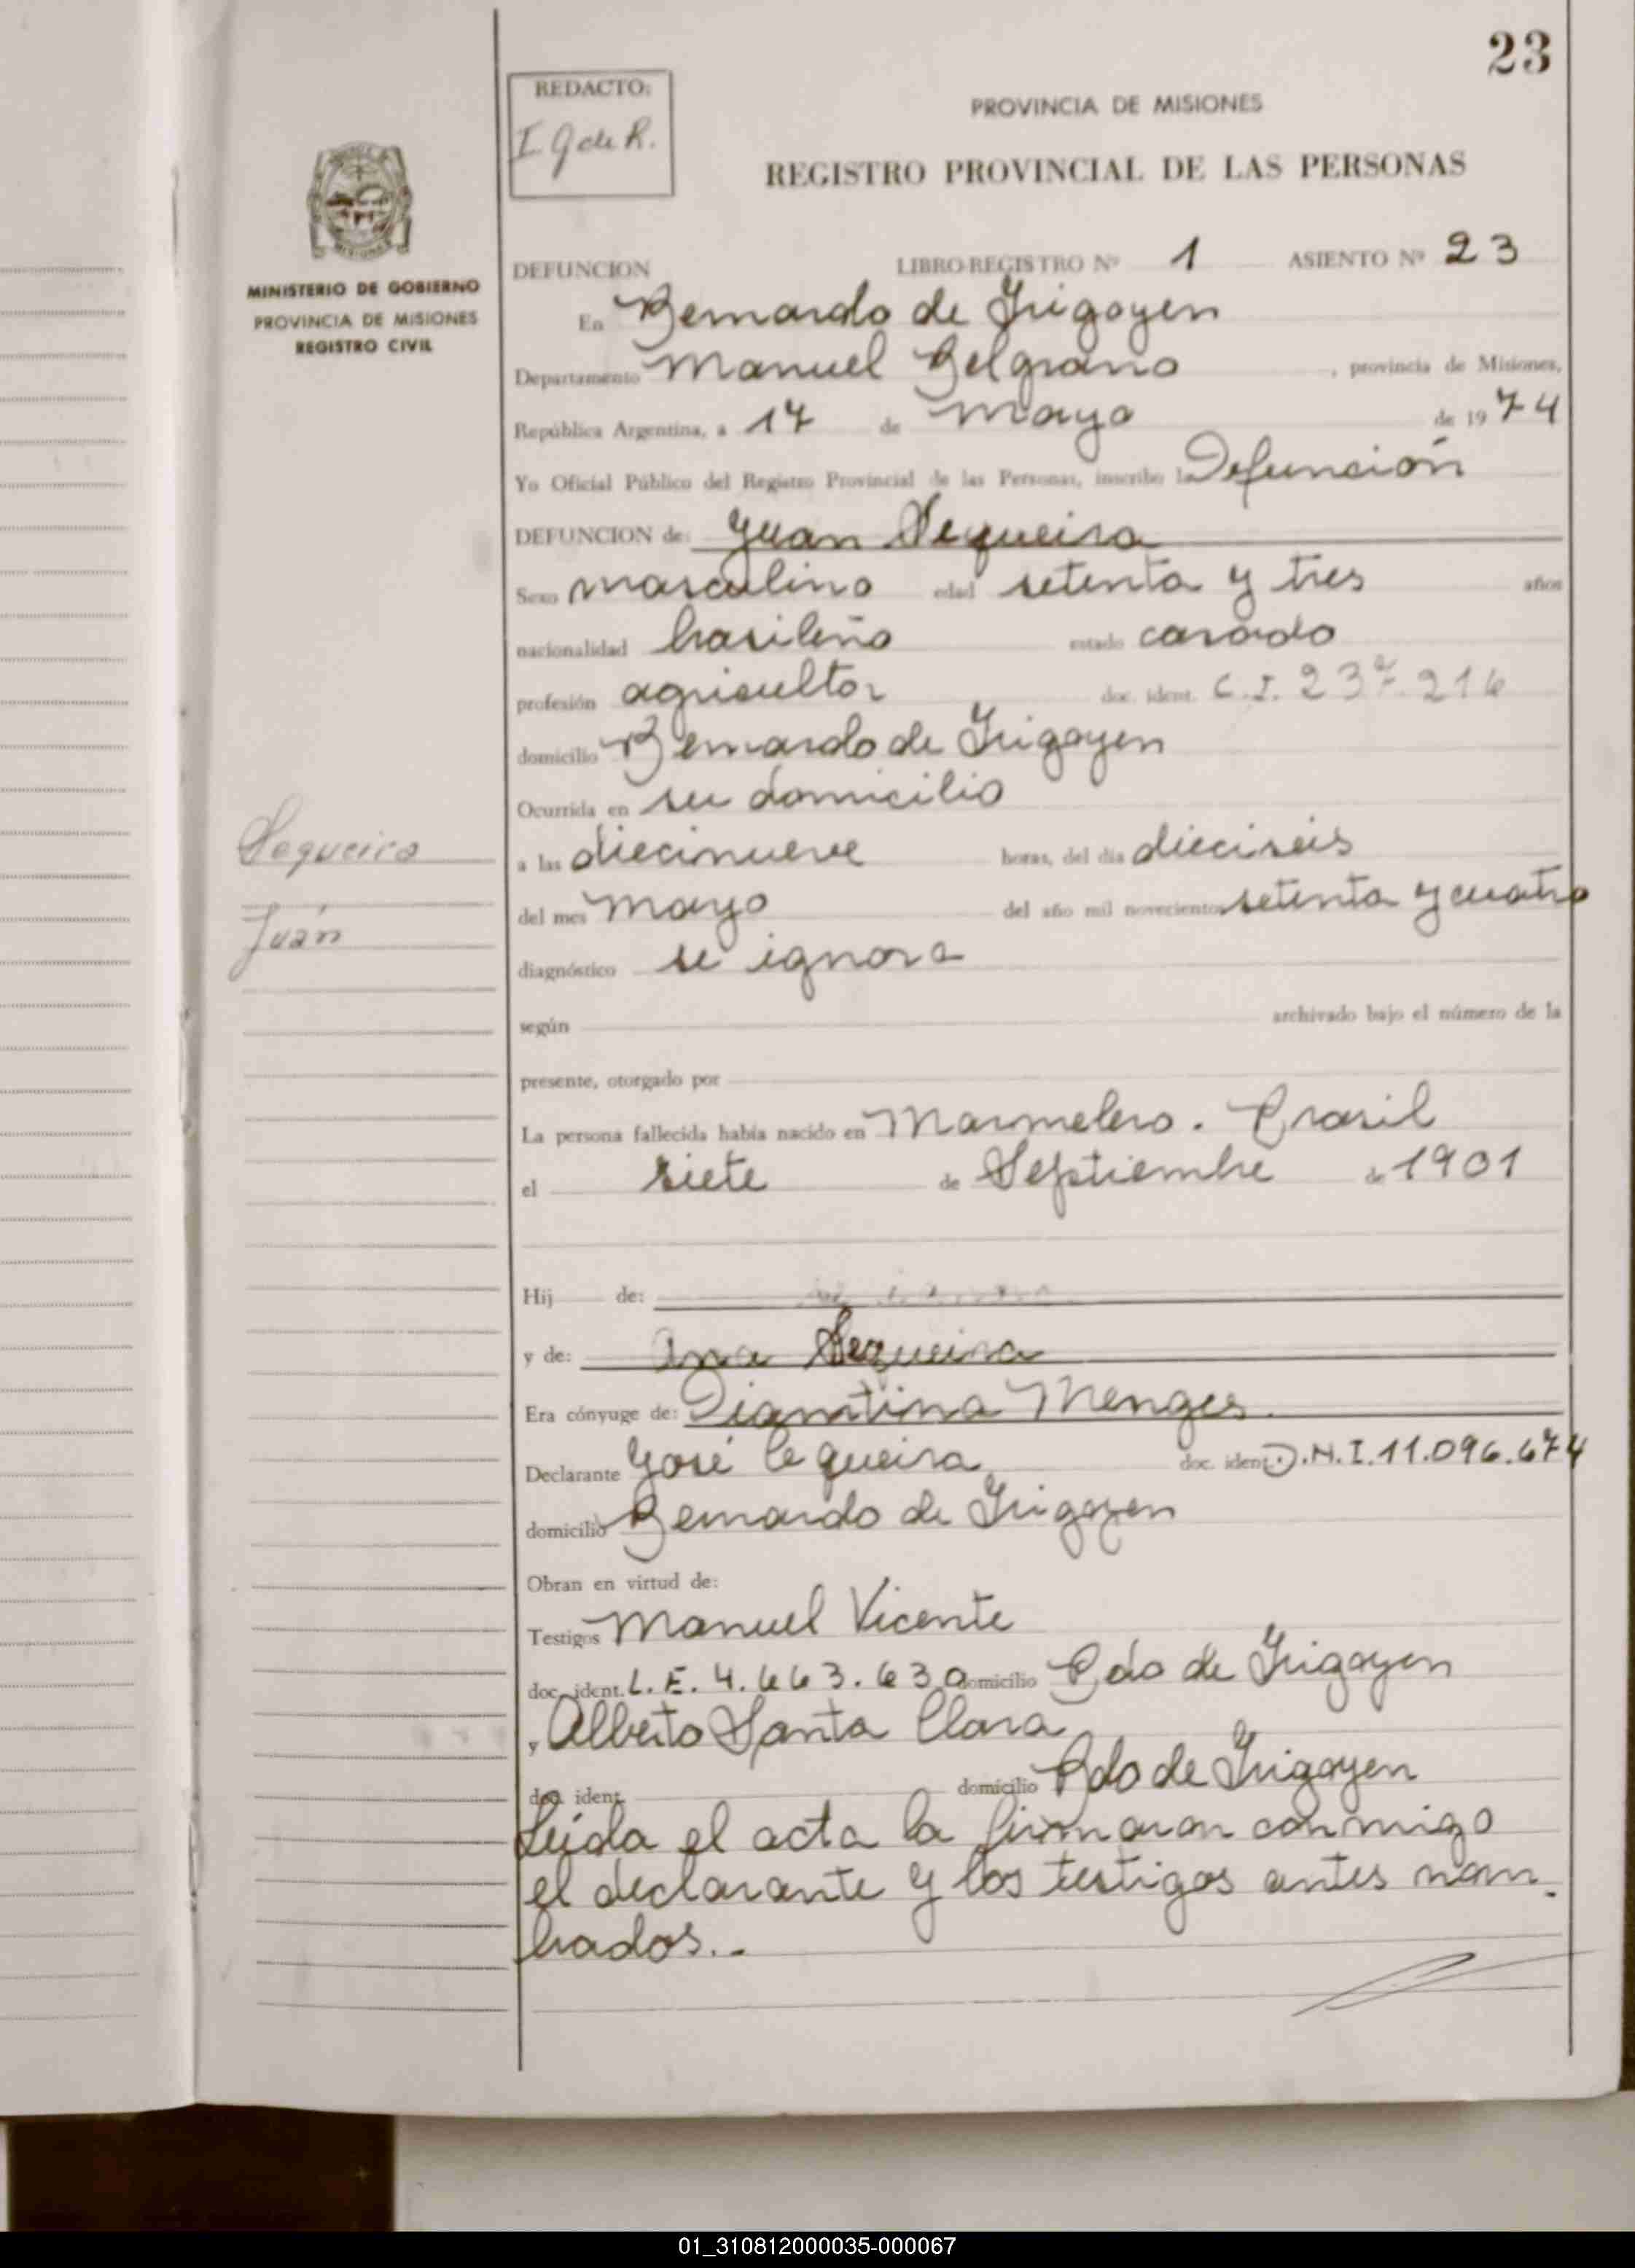 23
REDACTO:
I. G de R.
PROVINCIA DE MISIONES
REGISTRO PROVINCIAL DE LAS PERSONAS
MINISTERIO DE GOBIERNO
PROVINCIA DE MISIONES
REGISTRO CIVIL
DEFUNCION LIBRO-REGISTRO Nº 1 ASIENTO Nº 23
En Bernardo de Irigoyen
Departamento Manuel Belgrano, provincia de Misiones,
República Argentina, a 17 de Mayo de 1974
Yo Oficial Público del Registro Provincial de las Personas, inscribo la Defunción
DEFUNCION de: Juan Sequeira
Sexo masculino edad setenta y tres años
nacionalidad brasileño estado casado
profesión agricultor doc. ident. C.I. 237.216
domicilio Bernardo de Irigoyen
Ocurrida en su domicilio
a las diecinueve horas, del día dieciseis
del mes Mayo del año mil novecientos setenta y cuatro
diagnóstico se ignora
Sequeira
Juan
según archivado bajo el número de la
presente, otorgado por
La persona fallecida había nacido en Marmelero. Brasil
el siete de Septiembre de 1901
Hij de:
y de: Ana Sequeira
Era cónyuge de: Menges.
Declarante José Cequeira doc. ident. D.N.I. 11.096.674
domicilio Bernardo de Irigoyen
Obran en virtud de:
Testigos Manuel Vicente
doc. ident. L.E. 4.663.630 domicilio Bdo de Irigoyen
y Alberto Santa Clara
doc. ident. domicilio Bdo de Irigoyen
Leída el acta la firmaron conmigo
el declarante y los testigos antes nom-
brados.-
01_310812000035-000067